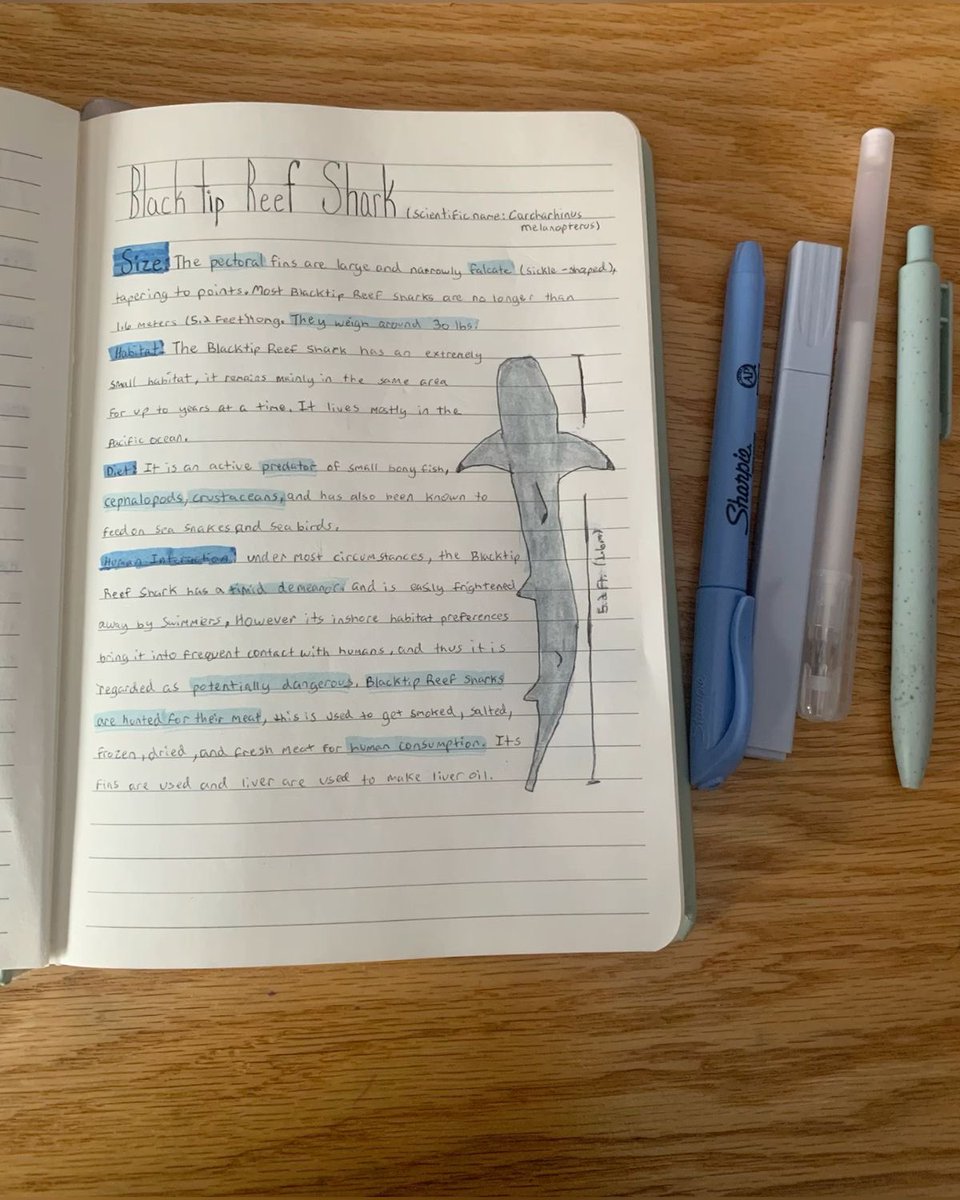 Blacktip Reef Shark (scientific name: Carcharhinus
melanopterus)
Size: The pectoral fins are large and narrowly falcate (sickle-shaped),
tapering to points. Most Blacktip Reef sharks are no longer than
1.6 meters (5.2 feet) long. They weigh around 30 lbs.
Habitat: The Blacktip Reef shark has an extremely
small habitat, it remains mainly in the same area
for up to years at a time. It lives mostly in the
Pacific ocean.
Diet: It is an active predator of small bony fish,
cephalopods, crustaceans, and has also been known to
feed on sea snakes and sea birds.
Human Interaction: under most circumstances, the Blacktip
Reef shark has a timid demeanor, and is easily frightened
away by swimmers, However its inshore habitat preferences
bring it into frequent contact with humans, and thus it is
regarded as potentially dangerous. Blacktip Reef sharks
are hunted for their meat, this is used to get smoked, salted,
frozen, dried, and fresh meat for human consumption. Its
fins are used and liver are used to make liver oil.
5.2 Ft. (1.6m)
Sharpie